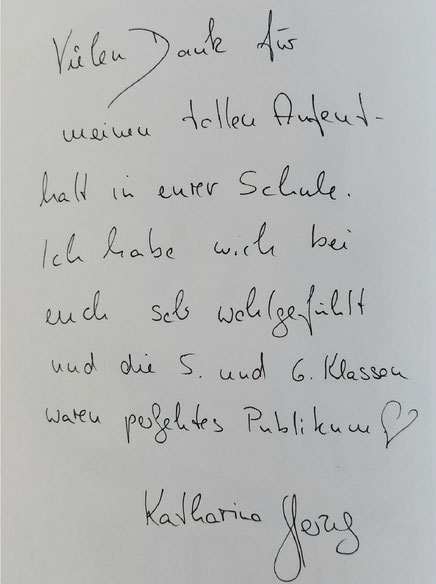 Vielen Dank für
meinen tollen Aufent-
halt in eurer Schule.
Ich habe mich bei
euch sehr wohlgefühlt
und die 5. und 6. Klassen
waren perfektes Publikum ♡
Katharina